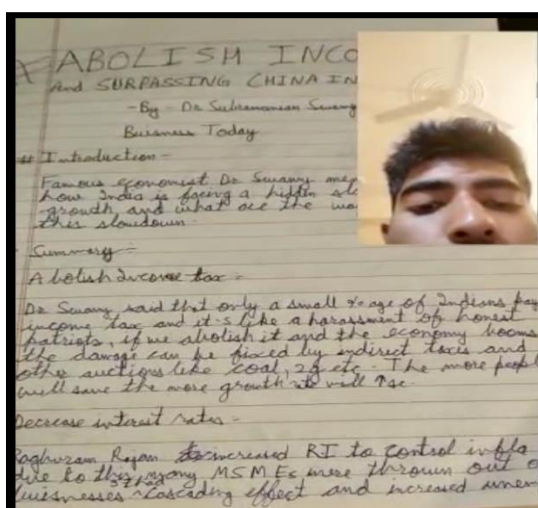 ABOLISH INCO
And SURPASSING CHINA IN
- By - Dr Subramanian Swamy
Buisness Today
# Introduction -
Famous economist Dr Swamy men
how India is facing a hidden slo
growth and what are the wa
this slowdown.
Summary -
Abolish Income tax -
Dr Swamy said that only a small %age of Indians pay
income tax and it's like a harassment of honest
patriots, if we abolish it and the economy booms
the damage can be fixed by indirect taxes and
other auctions like coal, 2g etc. The more peopl
will save the more growth rate will ↑se.
Decrease interest rates -
Raghuram Rajan increased RI to control infla
due to this many MSMEs were thrown out o
buisnesses Cascading effect and increased unem